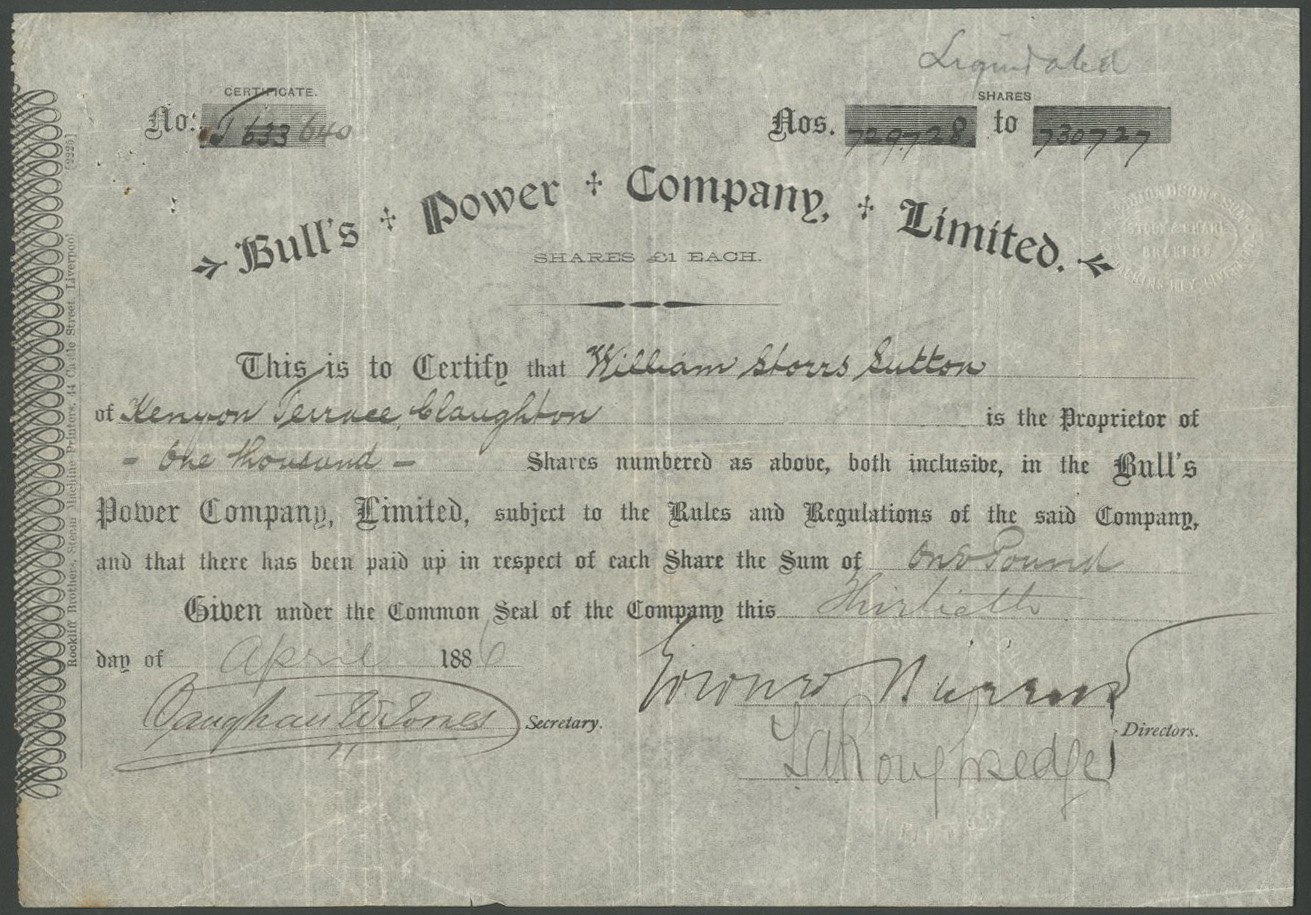 Liquidated
CERTIFICATE.
SHARES
No: J 633 640
Nos. 729,728 to 730,727
Bull's Power Company, Limited.
SHARES £1 EACH.
This is to Certify that William Storrs Sutton
of Kenyon Terrace, Claughton is the Proprietor of
- One thousand - Shares numbered as above, both inclusive, in the Bull's
Power Company, Limited, subject to the Rules and Regulations of the said Company,
and that there has been paid up in respect of each Share the Sum of One Pound
Given under the Common Seal of the Company this Thirtieth
day of April 1886
Vaughan W. Jones Secretary.
Directors.
Roughsedge
Rockliff Brothers, Steam Machine Printers, 44 Castle Street, Liverpool [2223]
STOCK & SHARE
BROKERS